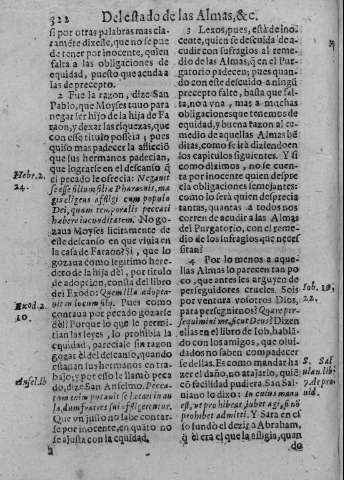 322
Del estado de las Almas, &c.
si por otras palabras mas cla-
ramẽte dixesse, que no se pue
de tener por inocente, quien
falta a las obligaciones de
equidad, puesto que acuda a
las de precepto.
2 Fue la razon, dize San
Pablo, que Moyses tuuo para
negar ser hijo de la hija de Fa
raon, y dexar las riquezas, que
con esse titulo posseia; pues
quiso mas padecer la afliccion
que sus hermanos padecian,
que lograrse en el descanso q̃
el pecado le ofrecia: Negauit
se esse filium filiæ Pharaonis, ma
gis eligens affligi cum populo
Dei, quam temporalis peccati
habere iucunditatem. No go-
zaua Moyses licitamente de
esse descanso en que viuia en
casa de Faraon? Si, que lo
gozaua como legitimo here-
dero de la hija dèl, por titulo
de adopcion, consta del libro
del Exodo: Quem illa adopta-
uit in locum filij. Pues como
contaua por pecado gozarse
dèl? Porque lo que le permi-
tian las leyes, lo prohibia la
equidad, pareciale sin razon
gozar èl del descanso, quando
estauan sus hermanos en tra-
bajo; y por esso le llamò peca
do, dize San Anselmo. Pecca-
tum enim putauit se lætari in au
la, dum fratres sui affligerentur.
Que vn justo no sabe contar-
se por inocente, en quãto no
se ajusta con la equidad.
Hebr. 2.
24.
Exod. 2.
10.
Ansel. ib
3 Lexos, pues, està de ino-
cente, quien se descuida de a-
cudir con sufragios al reme-
dio de las Almas, q̃ en el Pur-
gatorio padecen; pues quan-
do con este descuido a ningũ
precepto falte, basta que fal-
ta, no a vna, mas a muchas
obligaciones que tenemos de
equidad, y buena razon al re-
medio de aquellas Almas bẽ-
ditas, como se irà diziendo en
los capitulos siguientes. Y si
como diximos, no se cuen-
ta por inocente quien despre
cia obligaciones semejantes:
como lo serà quien desprecia
tantas, quantas a todos nos
corren de acudir a las Almas
del Purgatorio, con el reme-
dio de los sufragios que neces
sitan?
4 Por lo menos a aque-
llas Almas lo parecen tan po
co, que antes les arguyen de
perseguidores crueles. Sois
por ventura vosotros Dios,
para perseguirnos? Quare per-
sequimini me, sicut Deus? Dizen
ellas en el libro de Iob, habla-
do con los amigos, que olui-
dados no saben compadecer
se dellas. Es como mandar ha
zer el daño, no atajarlo, quiẽ
cõ facilidad pudiera. San Sal-
uiano lo dixo:
est, vt prohibeat, iubet agi, si nõ
prohibet admitti. Y Sara en es
so fundò el dezir a Abraham,
q̃ èl era el que la afligia, quan
do
Iob. 19,
22.
S. Sal
uian. lib.
7. de pro
uid.